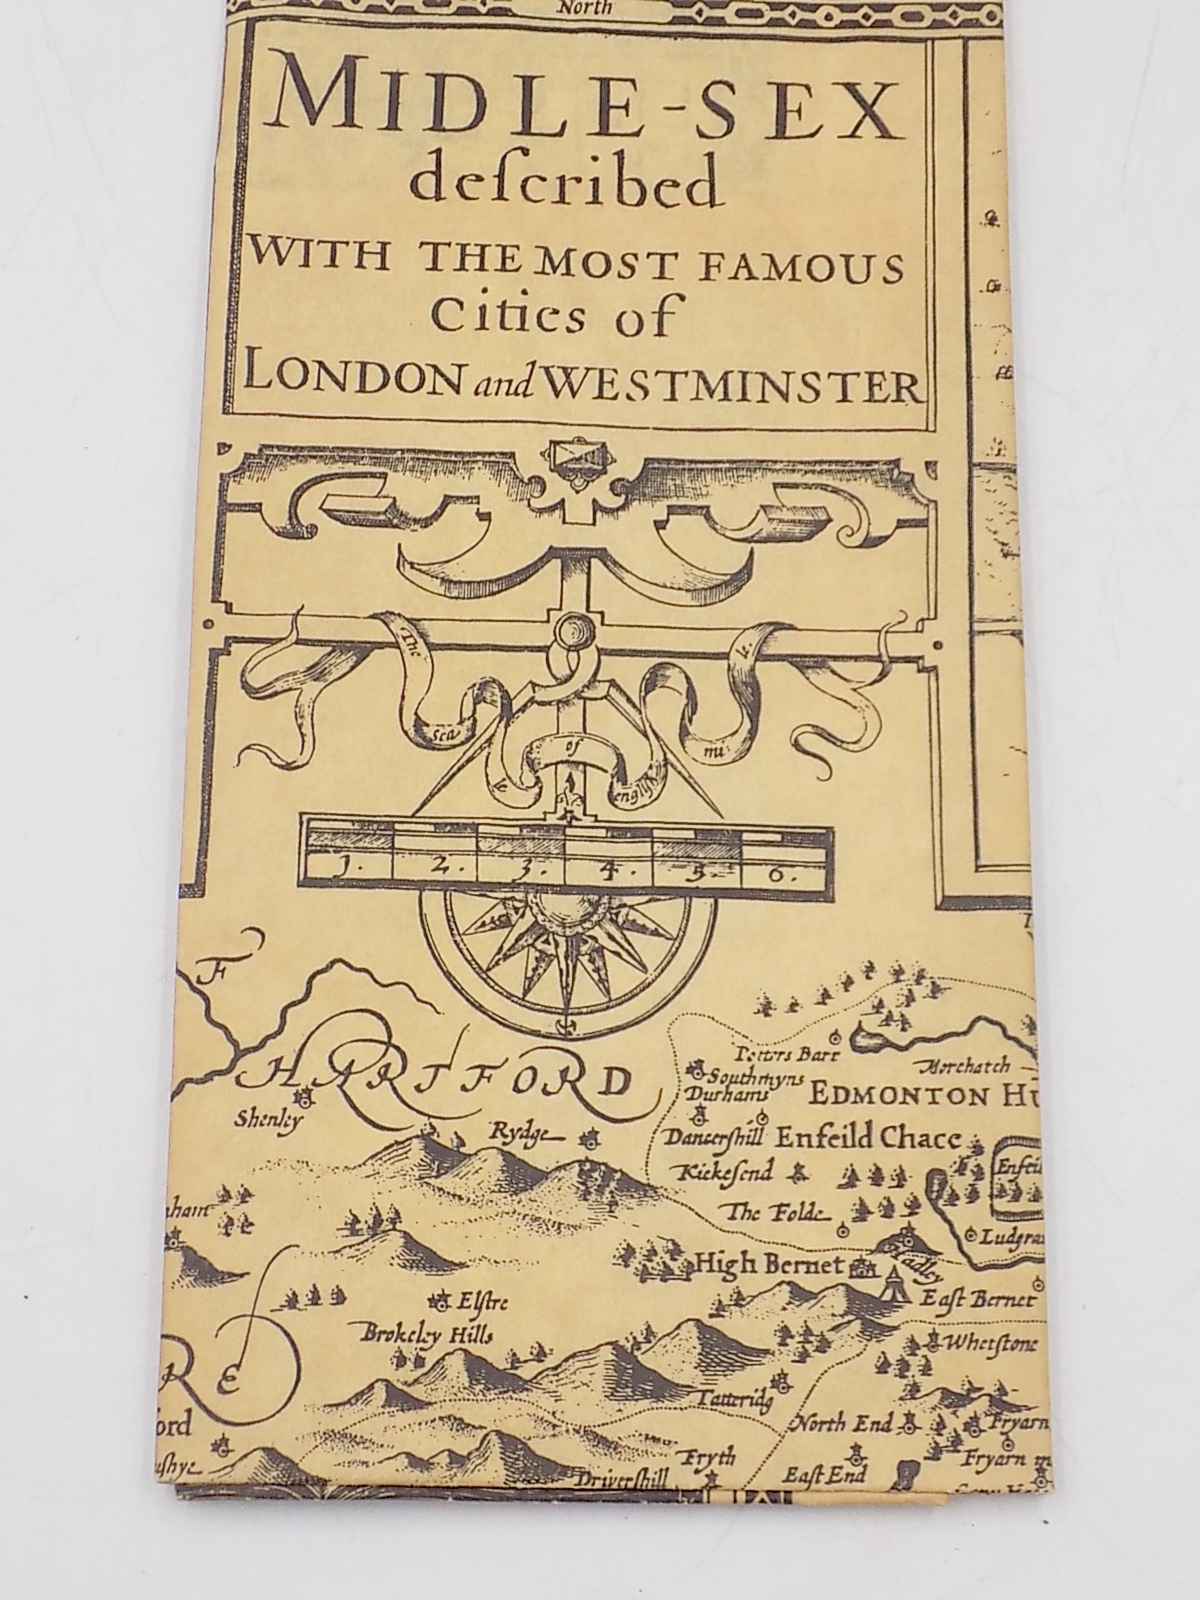 North
MIDLE-SEX
deſcribed
WITH THE MOST FAMOUS
Cities of
LONDON and WESTMINSTER
The
sca
le
of
engliſh
mi
le.
1. 2. 3. 4. 5. 6.
F
HARTFORD
Potters Barr
Morehatch
Southmyns
Durhams
EDMONTON HU
Shenley
Rydge
Dancerſhill
Enfeild Chace
Kickeſend
Enfei
The Folde
nham
Ludgra
High Bernet
Hadley
East Bernet
Elſtre
Brokeley Hills
Whetſtone
RE
Tatteridg
ord
North End
Fryarn
Fryth
Fryarn
uſhye
Driverſhill
East End